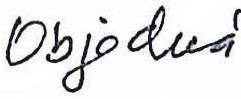 Objedná